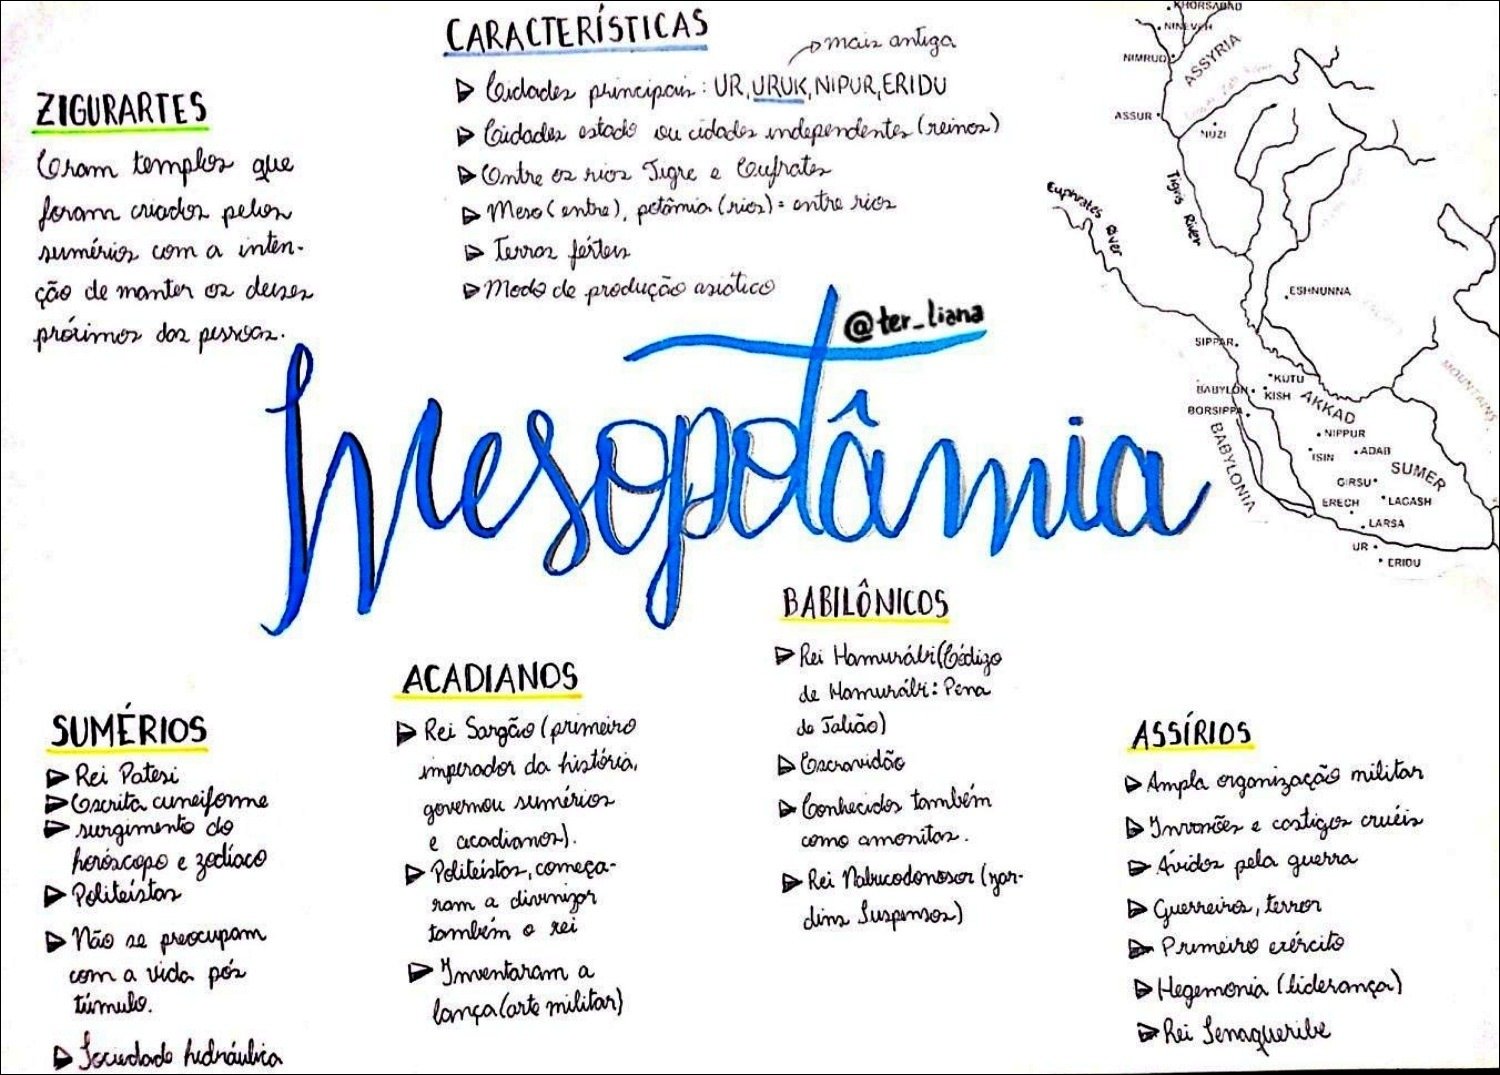 CARACTERÍSTICAS
mais antiga
Cidades principais: UR, URUK, NIPUR, ERIDU
Cidades estado ou cidades independentes (reinos)
Entre os rios Tigre e Eufrates
Meso (entre), potâmia (rios) = entre rios
Terras férteis
Modo de produção asiático
ZIGURARTES
Eram templos que
foram criados pelos
sumérios com a inten-
ção de manter os deuses
próximos das pessoas.
@ter_liana
Mesopotâmia
KHORSABAD
NINEVEH
NIMRUD
ASSYRIA
ASSUR
NUZI
Tigris River
Euphrates River
ESHNUNNA
SIPPAR
KUTU
BABYLON
KISH
AKKAD
BORSIPPA
NIPPUR
BABYLONIA
ISIN
ADAB
SUMER
GIRSU
ERECH
LAGASH
LARSA
UR
ERIDU
MOUNTAINS
SUMÉRIOS
Rei Patesi
Escrita cuneiforme
surgimento do
horóscopo e zodíaco
Politeístas
Não se preocupam
com a vida pós
túmulo.
Sociedade hidráulica
ACADIANOS
Rei Sargão (primeiro
imperador da história,
governou sumérios
e acadianos).
Politeístas, começa-
ram a divinizar
também o rei
Inventaram a
lança (arte militar)
BABILÔNICOS
Rei Hamurábi (Código
de Hamurábi: Pena
de Talião)
Escravidão
Conhecidos também
como amoritas.
Rei Nabucodonosor (jar-
dins Suspensos)
ASSÍRIOS
Ampla organização militar
Invasões e castigos cruéis
Ávidos pela guerra
Guerreiros, terror
Primeiro exército
Hegemonia (liderança)
Rei Senaqueribe